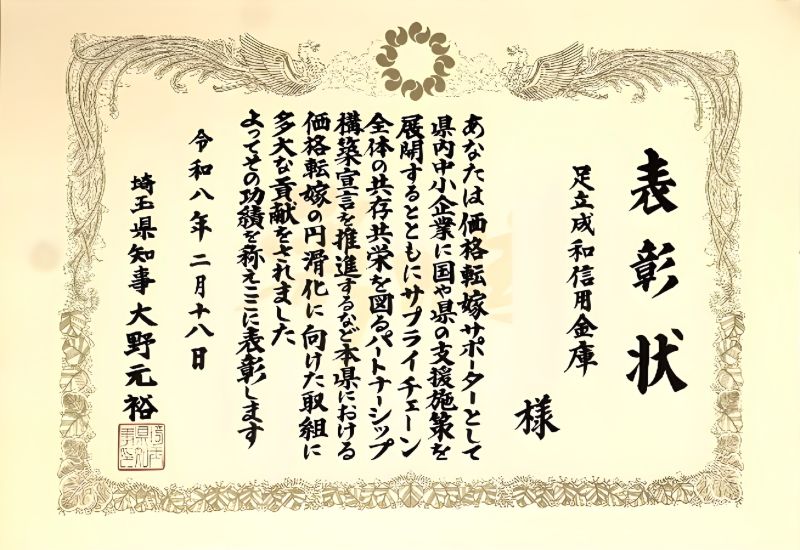 表彰状
足立成和信用金庫
様
あなたは価格転嫁サポーターとして
県内中小企業に国や県の支援施策を
展開するとともにサプライチェーン
全体の共存共栄を図るパートナーシップ
構築宣言を推進するなど本県における
価格転嫁の円滑化に向けた取組に
多大な貢献をされました
よってその功績を称えここに表彰します
令和八年二月十八日
埼玉県知事 大野元裕